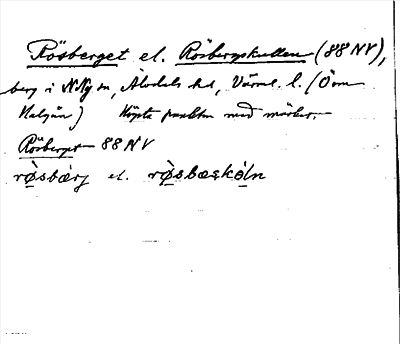 Rösberget el. Rösbergskullen (88 NV),
berg i N. Ny sn, Älvdals hd, Värml. l. (Öom
Halsjön) Höpta punkten med märke.
Rösberget 88 NV
rø̀sbærj el. rø̀sbæskóln